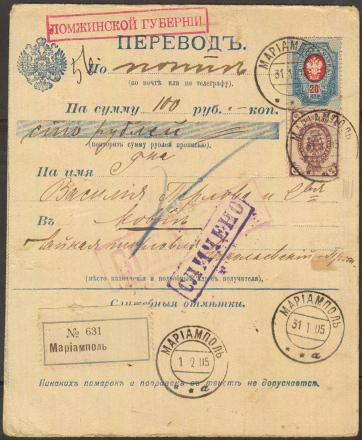 ЛОМЖИНСКОЙ ГУБЕРНІИ.
ПЕРЕВОДЪ.
МАРІАМПОЛЬ
31 1
20
По почтѣ
(по почтѣ или по телеграфу).
На сумму 100 руб. — коп.
сто рублей
(повторить сумму рублей прописью).
На имя
Василія Перлова и
Въ Москвѣ
СЛИЧЕНО
(мѣсто назначенія и подробный адресъ получателя).
Служебныя отмѣтки.
№ 631
Маріамполь
МАРІАМПОЛЬ
1 2 05
а
МАРІАМПОЛЬ
31 1 05
а
Никакихъ помарокъ и поправокъ въ текстѣ не допускается.